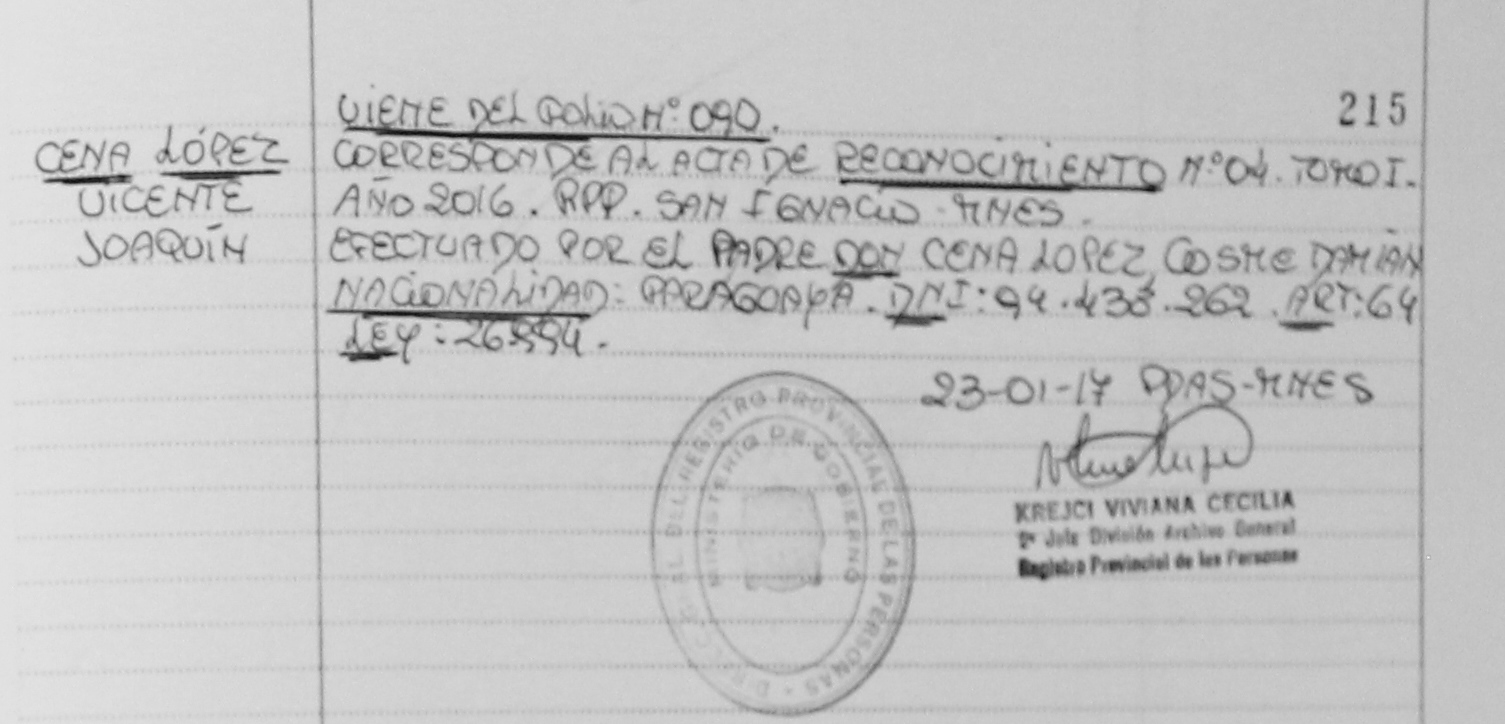 215
VIENE DEL FOLIO Nº 090.
CENA LÓPEZ
VICENTE
JOAQUÍN
CORRESPONDE AL ACTA DE RECONOCIMIENTO Nº 04. TOMO I.
AÑO 2016. RPP. SAN IGNACIO - MNES.
EFECTUADO POR EL PADRE DON CENA LOPEZ, COSME DAMIÁN
NACIONALIDAD: PARAGUAYA. DNI: 94.438.262. ART: 64
LEY: 26.994.
23-01-17 PDAS-MNES
KREJCI VIVIANA CECILIA
2º Jefe División Archivo General
Registro Provincial de las Personas
GRAL DEL REGISTRO PROVINCIAL DE LAS PERSONAS
MINISTERIO DE GOBIERNO